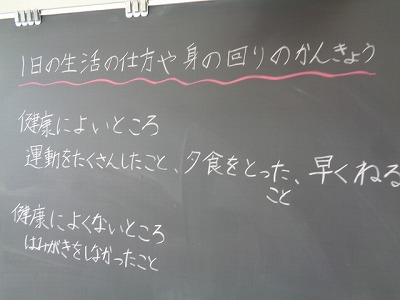 1日の生活の仕方や身の回りのかんきょう
健康によいところ
運動をたくさんしたこと、夕食をとった、早くねる
こと
健康によくないところ
はみがきをしなかったこと